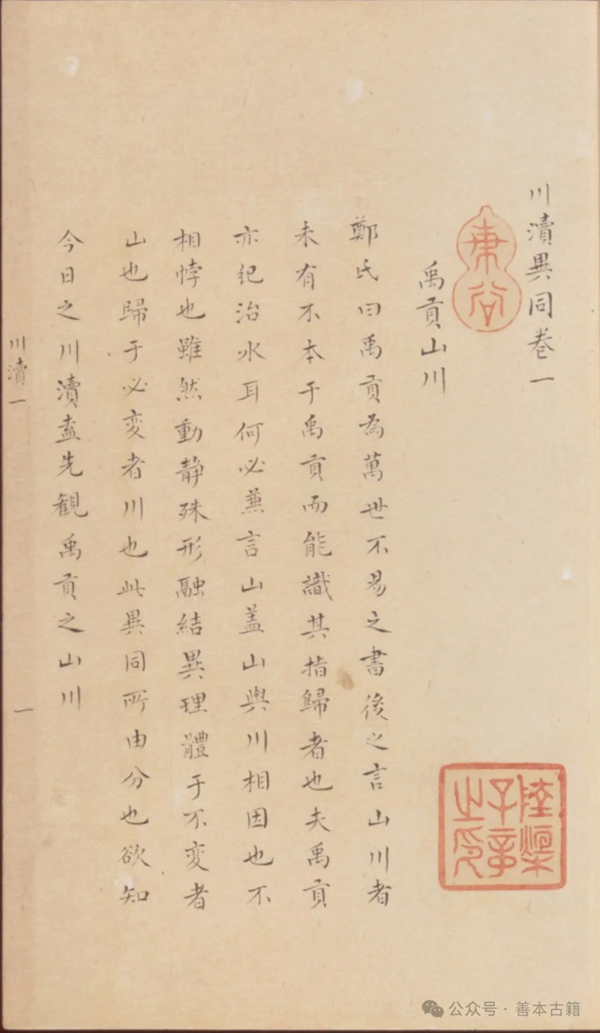 川瀆異同卷一
禹貢山川
鄭氏曰禹貢為萬世不易之書後之言山川者
未有不本于禹貢而能識其指歸者也夫禹貢
亦紀治水耳何必蕪言山盖山與川相因也不
相悖也雖然動靜殊形融結異理體于不变者
山也歸于必变者川也此異同所由分也欲知
今日之川瀆盍先観禹貢之山川
川瀆一
一
東谷
陸梁
子章
之印
公众号·善本古籍